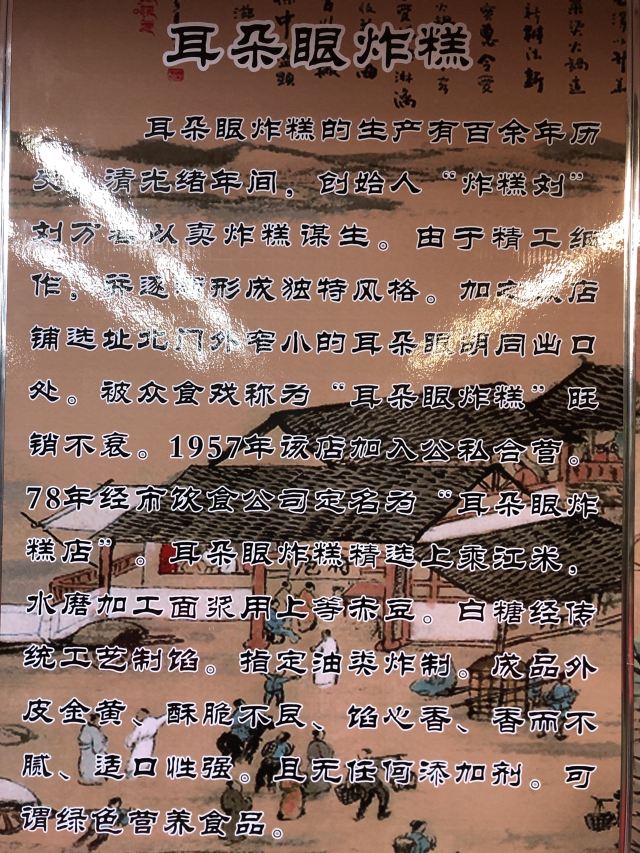 耳朵眼炸糕
耳朵眼炸糕的生产有百余年历
清光绪年间，创始人“炸糕刘”
刘万春以卖炸糕谋生。由于精工细
作，并逐渐形成独特风格。加之该店
铺选址北门外窄小的耳朵眼胡同出口
处。被众食戏称为“耳朵眼炸糕”旺
销不衰。1957年该店加入公私合营。
78年经市饮食公司定名为“耳朵眼炸
糕店”。耳朵眼炸糕精选上乘江米，
水磨加工面浆用上等赤豆。白糖经传
统工艺制馅。指定油类炸制。成品外
皮金黄、酥脆不艮、馅心香、香而不
腻、适口性强。且无任何添加剂。可
谓绿色营养食品。